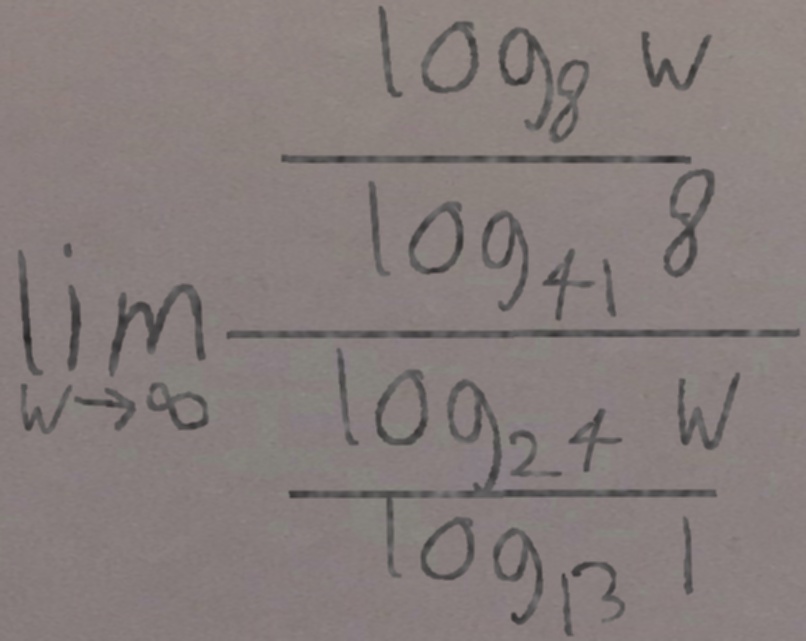 \lim_{w \to \infty} \frac{\frac{\log_{8} w}{\log_{41} 8}}{\frac{\log_{24} w}{\log_{13} 1}}